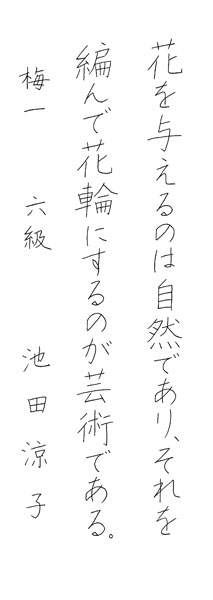 花を与えるのは自然であり、それを
編んで花輪にするのが芸術である。
梅一 六級 池田涼子